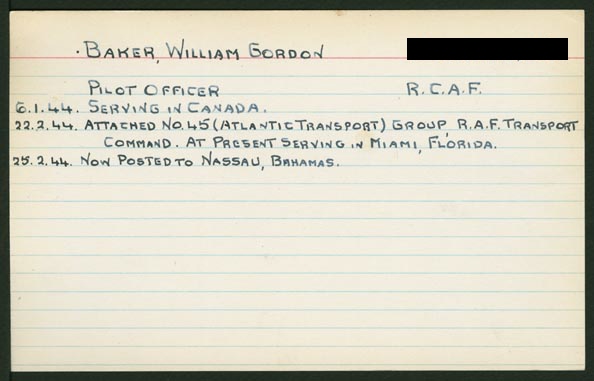 · BAKER, WILLIAM GORDON
PILOT OFFICER R.C.A.F.
6.1.44. SERVING IN CANADA.
22.2.44. ATTACHED NO.45 (ATLANTIC TRANSPORT) GROUP, R.A.F. TRANSPORT
COMMAND. AT PRESENT SERVING IN MIAMI, FLORIDA.
25.2.44. NOW POSTED TO NASSAU, BAHAMAS.